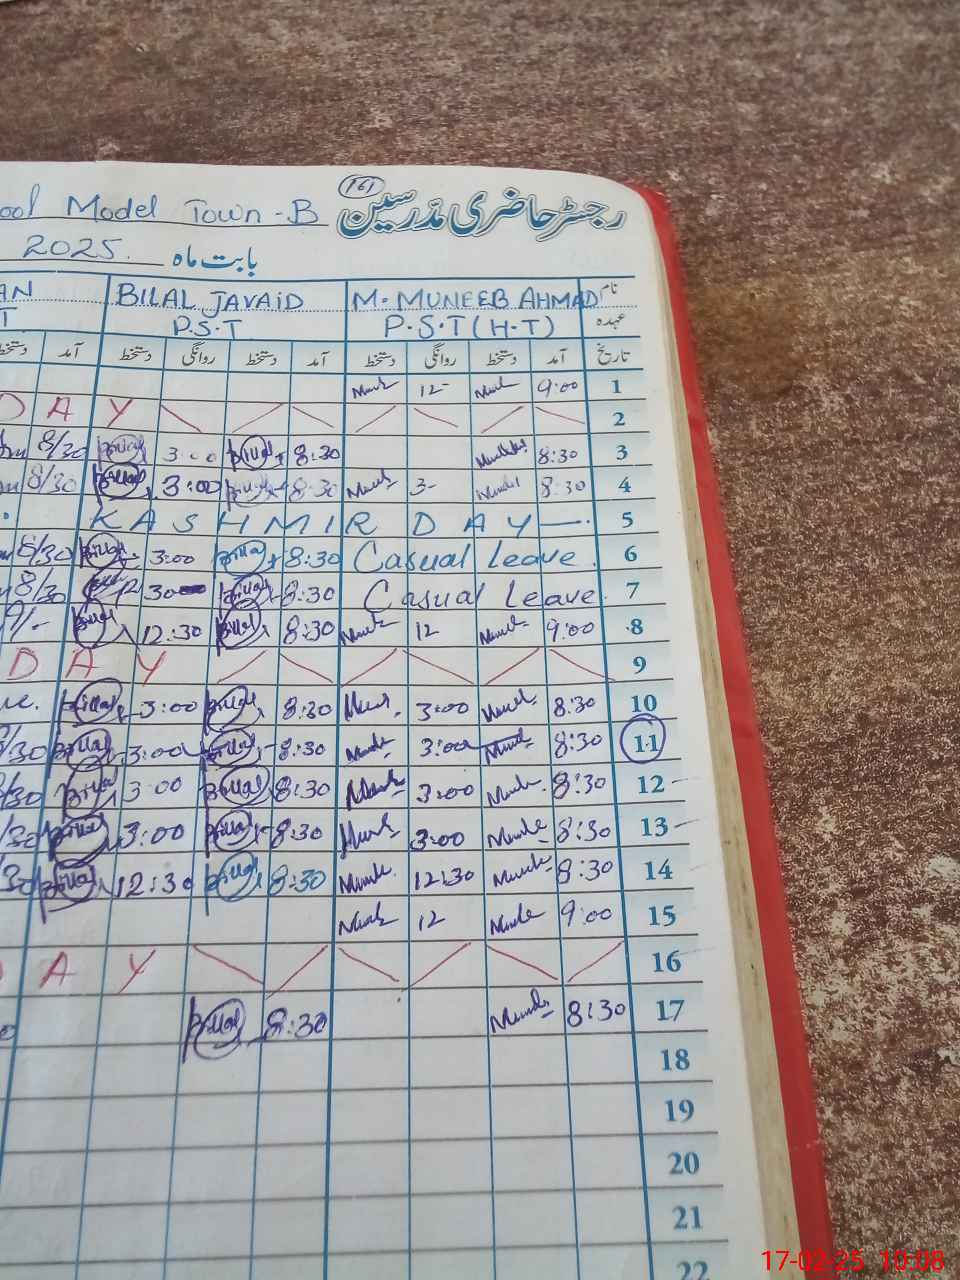 161
رجسٹر حاضری مدرسین
Model Town-B
2025. بابت ماہ
BILAL JAVAID M. MUNEEB AHMAD نام
P.S.T P.S.T (H.T) عہدہ
آمد دستخط روانگی دستخط آمد دستخط روانگی دستخط آمد تاریخ
12- 9:00 1
D A Y 2
8/30 Bilal 3:00 Bilal 8:30 8:30 3
8/30 Bilal 3:00 Bilal 8:30 3- 8:30 4
KASHMIR DAY 5
8/30 Bilal 3:00 Bilal 8:30 Casual Leave. 6
8/30 300 Bilal 8:30 Casual Leave. 7
9/- Bilal 12:30 Bilal 8:30 12 9:00 8
D A Y 9
Bilal 3:00 Bilal 8:30 3:00 8:30 10
Bilal 3:00 Bilal 8:30 3:00 8:30 11
Bilal 3:00 Bilal 8:30 3:00 8:30 12
Bilal 3:00 Bilal 8:30 3:00 8:30 13
Bilal 12:30 Bilal 8:30 12:30 8:30 14
12 9:00 15
A Y 16
Bilal 8:30 8:30 17
18
19
20
21
22
17-02-25 10:08